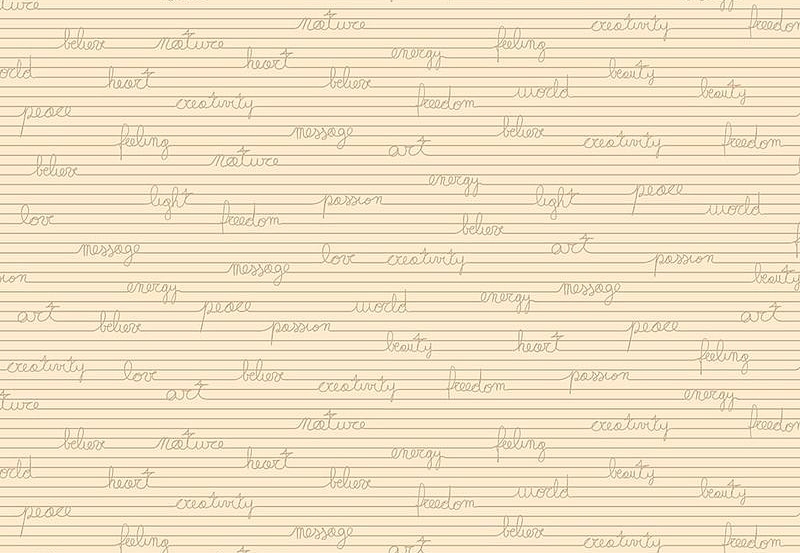 nature
nature creativity freedom
believe nature energy feeling
world heart heart believe beauty
peace creativity freedom world beauty
feeling message art believe creativity freedom
believe nature energy
light passion light peace world
love freedom believe
message love creativity art passion
passion message energy message beauty
energy peace world energy
art believe passion peace art
beauty heart feeling
creativity love believe creativity freedom passion
nature art energy
nature creativity freedom
believe nature energy feeling
world heart heart believe beauty
peace creativity freedom world beauty
feeling message art believe creativity freedom